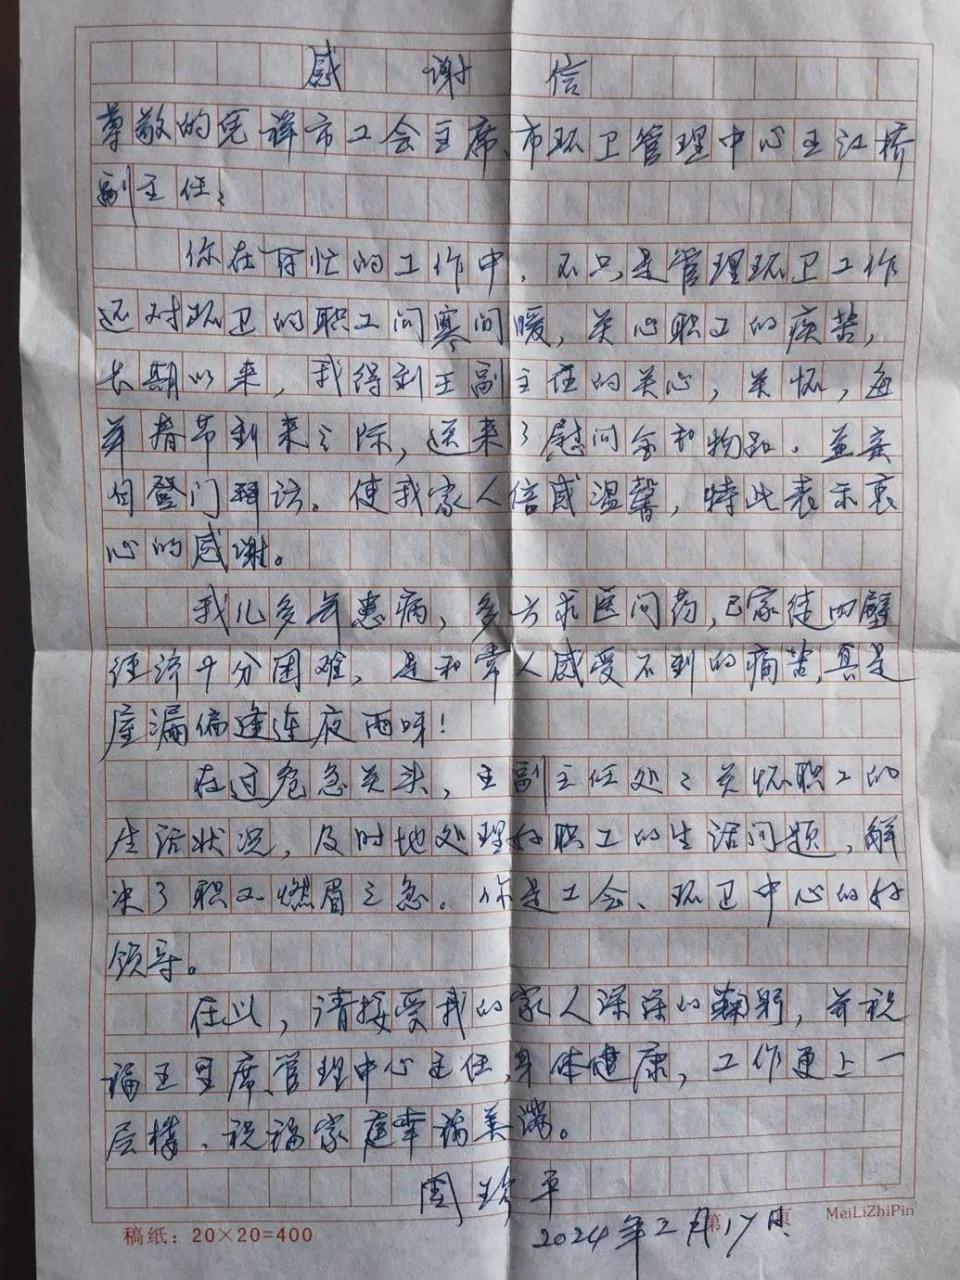 感谢信
尊敬的凭祥市工会主席、市环卫管理中心王江桥
副主任：
你在百忙的工作中，不只是管理环卫工作
还对环卫的职工问寒问暖，关心职工的疾苦，
长期以来，我得到王副主任的关心，关怀，每
年春节到来之际，送来了慰问金和物品，并亲
自登门拜访。使我家人倍感温馨，特此表示衷
心的感谢。
我儿多年患病，多方求医问药，已家徒四壁
经济十分困难，是和常人感受不到的痛苦，真是
屋漏偏逢连夜雨呀！
在过危急关头，王副主任处之关怀职工的
生活状况，及时地处理好职工的生活问题，解
决了职工燃眉之急。你是工会、环卫中心的好
领导。
在此，请接受我的家人深深的鞠躬，并祝
福王主席、管理中心主任，身体健康，工作更上一
层楼，祝福家庭幸福美满。
周 平
2024年2月17日
稿纸：20×20=400
第 页
MeiLiZhiPin